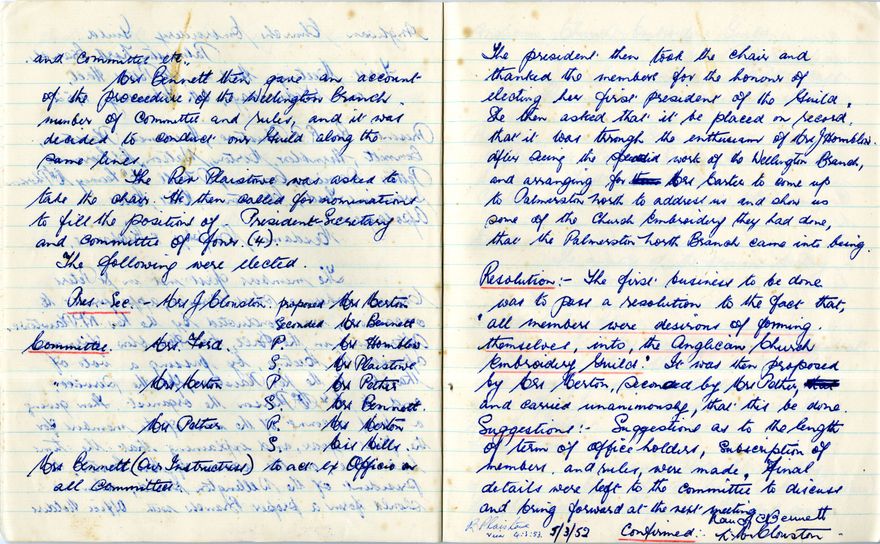 and committee etc.
Mrs Bennett then gave an account
of the proceedure of the Wellington Branch.
number of Committee and rules, and it was
decided to conduct our Guild along the
same lines.
The Rev Plaistowe was asked to
take the chair. He then called for nominations
to fill the position of President-Secretary
and committee of four. (4).
The following were elected.
Pres. Sec. - Mrs J Clouston. proposed Mrs Merton
Seconded Mrs Bennett
Committee. Mrs. Ford. P. Mrs Hornblow
S. Mrs Plaistowe
" Mrs Merton P. Mrs Pether
S. Mrs Bennett.
Mrs Pether P. Mrs Merton
S. Miss Mills.
Mrs Bennett (Our Instructress) to act ex Officio on
all Committees.
The president then took the chair and
thanked the members for the honour of
electing her first president of the Guild.
She then asked that it be placed on record,
that it was through the enthusiasm of Mrs J Hornblow
after seeing the work of the Wellington Branch,
and arranging for Mrs Carter to come up
to Palmerston North to address us and show us
some of the Church Embroidery they had done,
that the Palmerston North Branch came into being.
Resolution:- The first business to be done
was to pass a resolution to the fact that,
"all members were desirous of forming
themselves, into, the Anglican Church
Embroidery Guild." It was then proposed
by Mrs Merton, Seconded by Mrs Pether,
and carried unanemously, that this be done.
Suggestions:- Suggestions as to the length
of term of Office holders, Subscription of
members. and rules, were made, final
details were left to the committee to discuss
and bring forward at the next meeting.
Bennett
R Plaistowe 5/3/52 Confirmed:- Clouston
4.3.53.